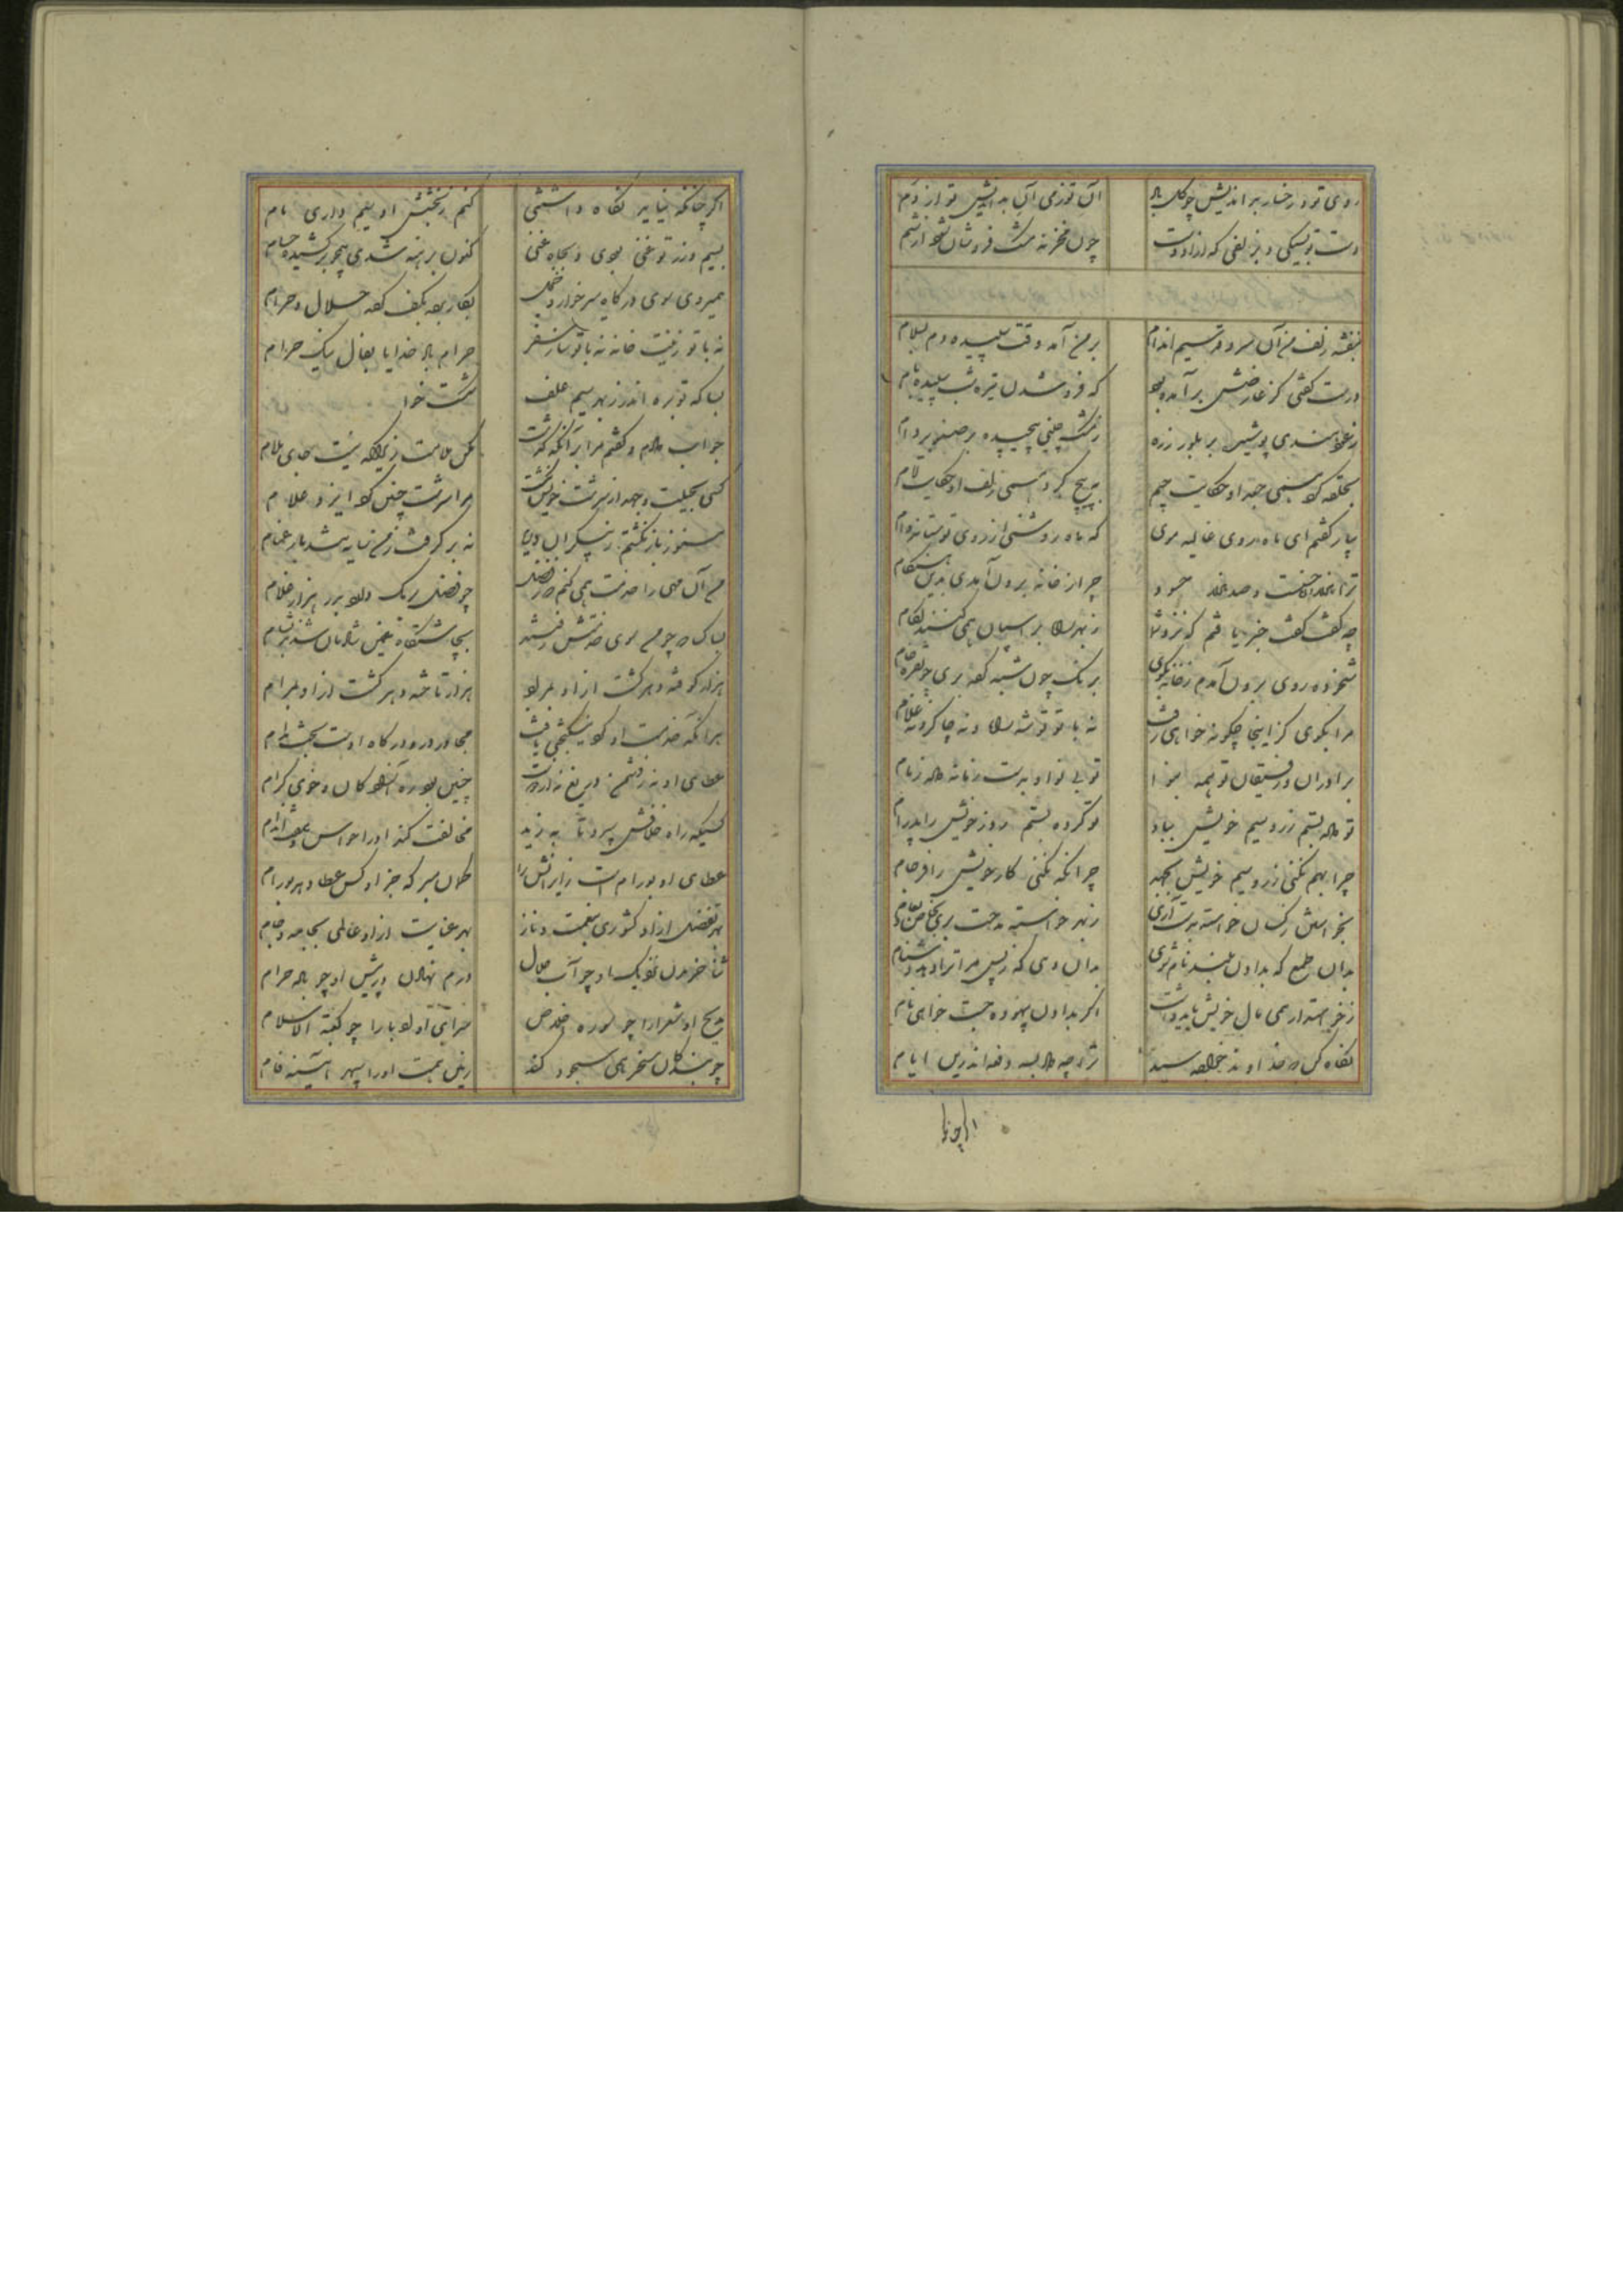 روی تو و رخسار بد اندیش چو گل باد
آن تو ز می آن بد اندیش تو از دم
دست تو بنیکی و بزلفی که ازو دست
چون مخزنه مشک فروشان شود از شم
بنفشه زلف من آن سرو قد سیم اندام
بر من آمد وقت سپیده دم بسلام
درست گفتی کز عارضش برآمده بود
که فرو شدن تیره شب سپیده بام
ز عود هندی پوشیده بر بلور زره
ز مشک چینی پیچیده بر صنوبر دام
بحلقه کرده همی جعد او حکایت جیم
به پیچ کرد همی زلف او حکایت لام
بیار گفتم ای ماه روی غالیه موی
که ماه روشنی از روی تو ستاند وام
ترا هزار و صد هزار حسود
چرا ز خانه برون آمدی بدین هنگام
چه گفت گفت خبر یافتم که نزد شما
ز بهر راه بر اسپان همی کنند لگام
شخوده روی برون آمدم ز خانه بکوی
برنگ چون شبه کرده بری چو نقره خام
مرا بگوی کز اینجا چگونه خواهی رفت
نه با تو توشه راه و نه چاکر و نه غلام
برادران و رفیقان تو همه بنوا
تو بی نوا و بدست زمانه داده زمام
تو داده بستم زر و سیم خویش بباد
تو کرده بستم روز خویش را بدرام
چرا بهم نکنی زر و سیم خویش بجهد
چرا نگه نکنی کار خویش را فرجام
بخواهش از کسان خواسته بدست آری
ز بهر خواسته مدحت بری بخاص و بعام
بدان طمع که بدادن بلند نام شوی
بدان دهی که ز پس مر ترا دهد دشنام
ز خواسته در همی مال خویش باید داشت
اگر بدادن بیهوده جست خواهی نام
نگاه کن که خداوند خواجه سید
ترا چه داده بود اندرین ایام
اگر چنانکه
اگر چنانکه نباید نگاه داشتمی
کنم ز بخشش او بنیم داری نام
بسیم و زر تو غنی بودی و بجاه غنی
کنون برهنه شدی همچو بر کشیده حسام
همی روی سوی درگاه میر خوار و خجل
بکار برده بکف کرده حلال و حرام
نه با تو زینت خانه نه با تو ساز سفر
حرام باد خدایا بفال نیک حرام
بسا که تو بره اندر ز بهر سیم علف
شکست خوا
جواب دادم و گفتم مرا بدانکه گذشت
مکن ملامت زیرا که نیست جای ملام
کسی بحیلت و جهد از سرشت خویش نگشت
مرا سرشت چنین کرد ایزد علام
هنوز باز نگشتم ز بیکران دریا
نه بر گرفت ز من سایه شد بار غمام
من آن مهی را خدمت همی کنم که ز فضل
چو فضل برمک دارد بدر هزار غلام
بسا کسا که چو من سوی خدمتش رفتند
بچاشتگاه غمین شادمان شدند بشام
هزار کوفته دهر گشت ازو بمراد
هزار تافته دهر گشت ازو پدرام
هر آنکه خدمت او کرد نیکبختی یافت
مجاور در درگاه اوست بخت مدام
عطای او نه ز دشمن دریغ و نه ز دوست
چنین بود ره آزادگان و خوی کرام
کسیکه راه خلافش سپرد تا بزید
مخالفت کند او را حواس و هفت اندام
عطای او بدوام است زایرانش را
گمان مبر که جز او کس عطا دهد بدوام
بهر تفضل ازو کشوری بنعمت و ناز
بهر عنایت ازو عالمی بجامه و جام
ثنا خریدن نزدیک او چو آب حلال
درم نهادن در پیش او چو باده حرام
مدیح او شعرا را چو سوره اخلاص
سرای او ادبا را چو کعبه اسلام
چو بندگان مسخر همی سجود کند
زمین همت او را سپهر آینه فام